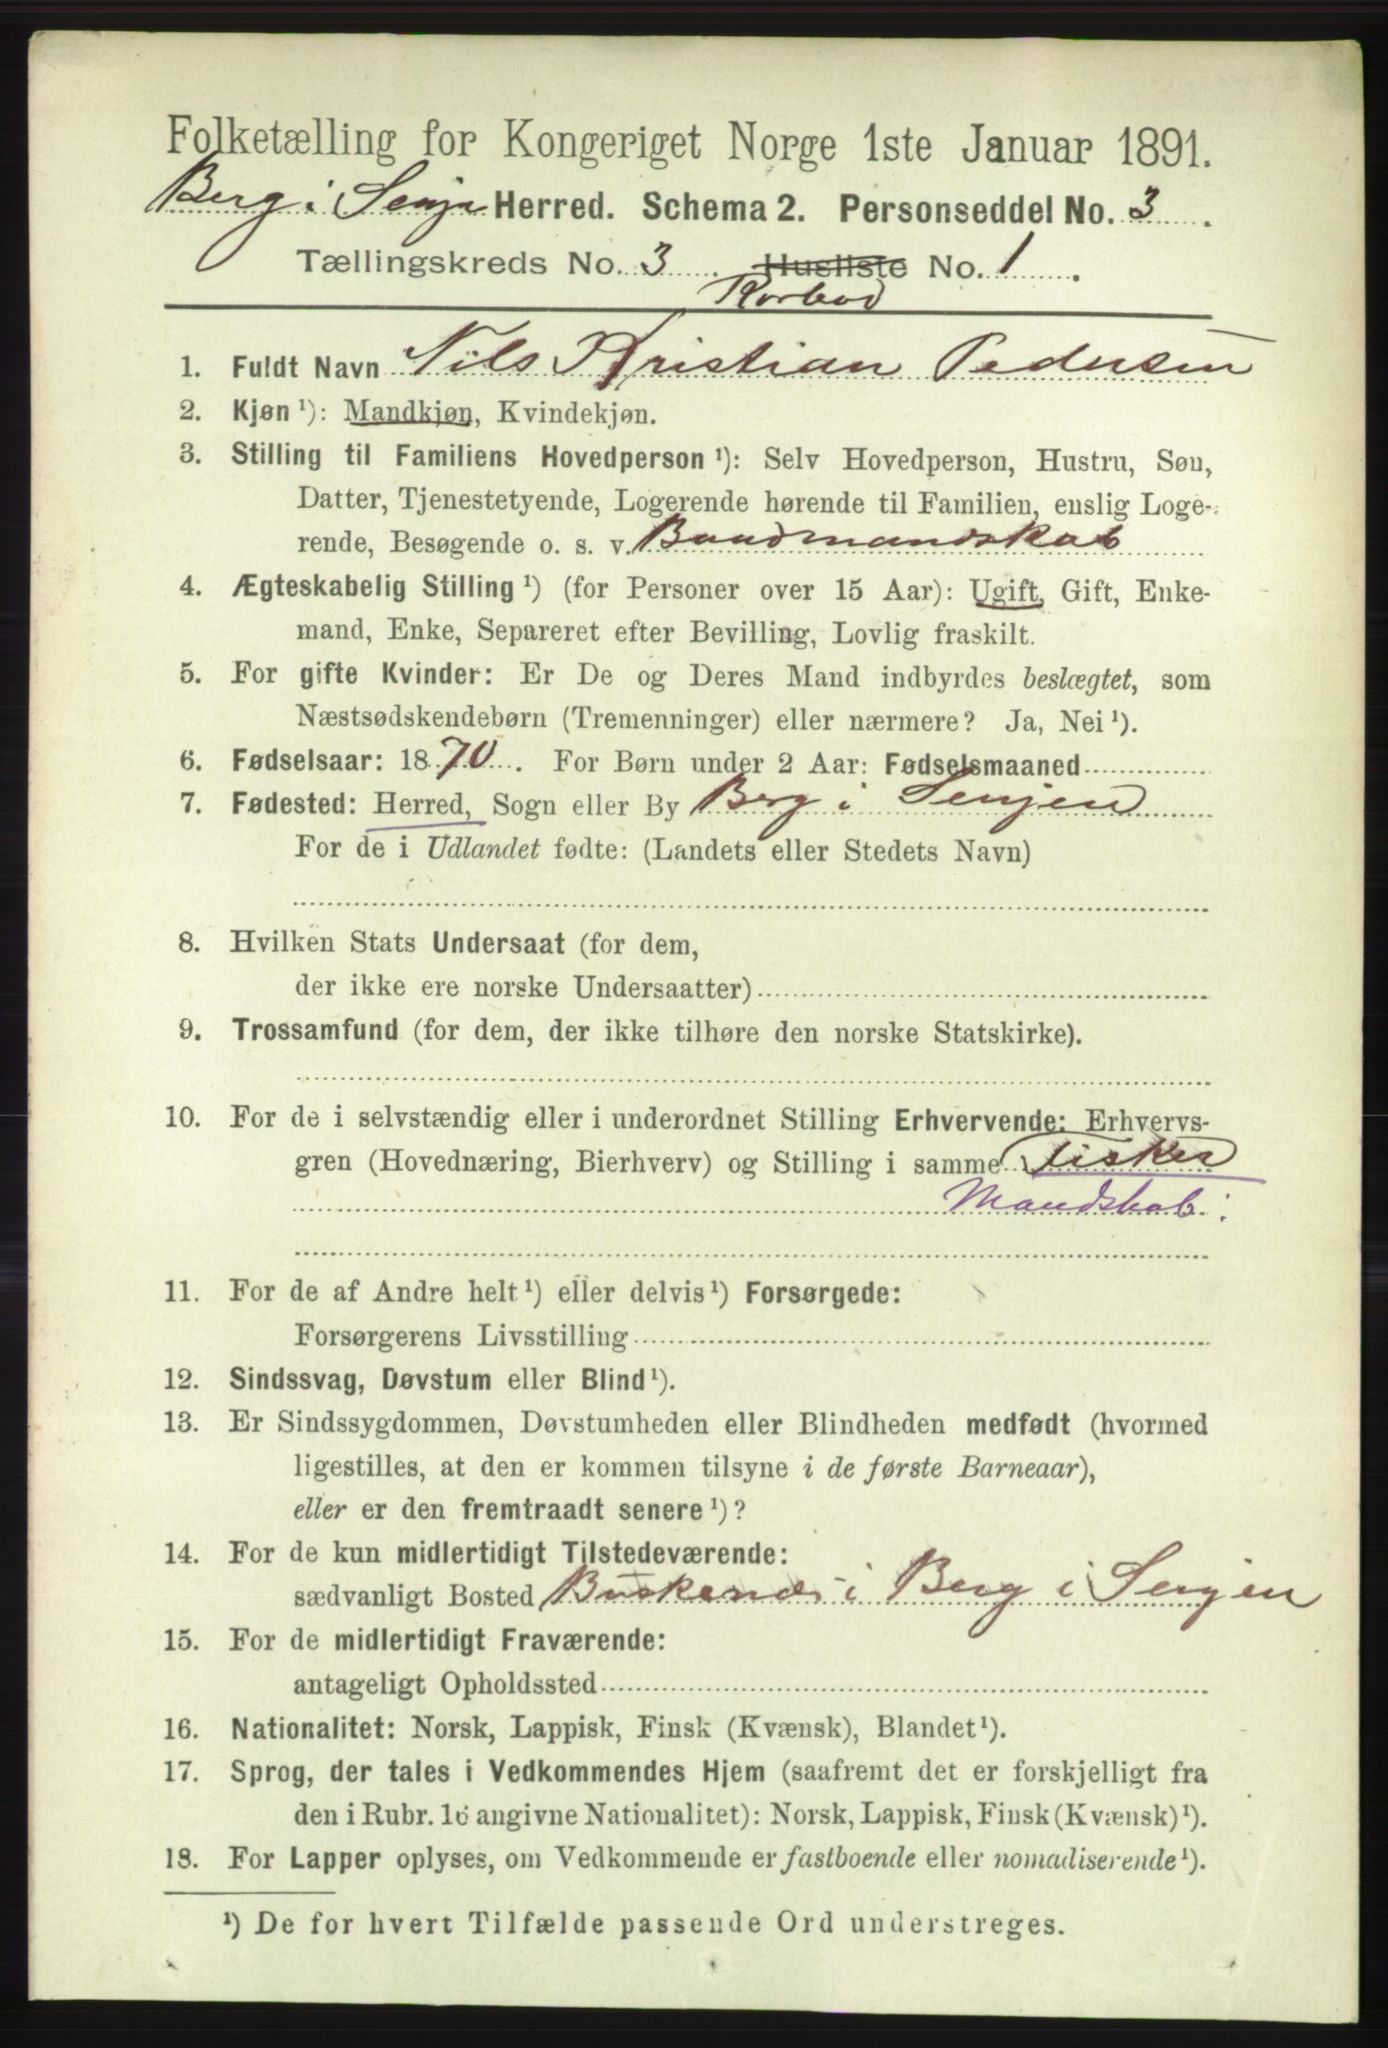 Folketælling for Kongeriget Norge 1ste Januar 1891.
Berg i Senja Herred. Schema 2. Personseddel No. 3.
Tællingskreds No. 3. Husliste No. 1.
Rorbod
1. Fuldt Navn Nils Kristian Pedersen
2. Kjøn ¹): Mandkjøn, Kvindekjøn.
3. Stilling til Familiens Hovedperson ¹): Selv Hovedperson, Hustru, Søn,
Datter, Tjenestetyende, Logerende hørende til Familien, enslig Loge-
rende, Besøgende o. s. v. Baadmandskab
4. Ægteskabelig Stilling ¹) (for Personer over 15 Aar): Ugift, Gift, Enke-
mand, Enke, Separeret efter Bevilling, Lovlig fraskilt.
5. For gifte Kvinder: Er De og Deres Mand indbyrdes beslægtet, som
Næstsødskendebørn (Tremenninger) eller nærmere? Ja, Nei ¹).
6. Fødselsaar: 1870. For Børn under 2 Aar: Fødselsmaaned
7. Fødested: Herred, Sogn eller By Berg i Senjen
For de i Udlandet fødte: (Landets eller Stedets Navn)
8. Hvilken Stats Undersaat (for dem,
der ikke ere norske Undersaatter)
9. Trossamfund (for dem, der ikke tilhøre den norske Statskirke).
10. For de i selvstændig eller i underordnet Stilling Erhvervende: Erhvervs-
gren (Hovednæring, Bierhverv) og Stilling i samme Fisker
Mandskab:
11. For de af Andre helt ¹) eller delvis ¹) Forsørgede:
Forsørgerens Livsstilling
12. Sindssvag, Døvstum eller Blind ¹).
13. Er Sindssygdommen, Døvstumheden eller Blindheden medfødt (hvormed
ligestilles, at den er kommen tilsyne i de første Barneaar),
eller er den fremtraadt senere ¹)?
14. For de kun midlertidigt Tilstedeværende:
sædvanligt Bosted i Berg i Senjen
15. For de midlertidigt Fraværende:
antageligt Opholdssted
16. Nationalitet: Norsk, Lappisk, Finsk (Kvænsk), Blandet ¹).
17. Sprog, der tales i Vedkommendes Hjem (saafremt det er forskjelligt fra
den i Rubr. 16 angivne Nationalitet): Norsk, Lappisk, Finsk (Kvænsk) ¹).
18. For Lapper oplyses, om Vedkommende er fastboende eller nomadiserende ¹).
¹) De for hvert Tilfælde passende Ord understreges.